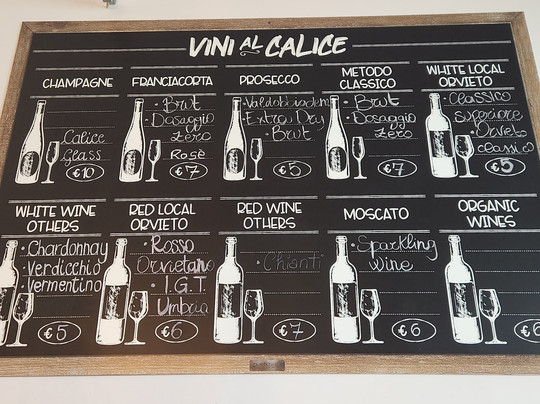 VINI AL CALICE
CHAMPAGNE
Calice
Glass
€10
FRANCIACORTA
• Brut
• Dosaggio
zero
Rosè
€7
PROSECCO
• Valdobbiadene
• Extra Dry
• Brut
€5
METODO
CLASSICO
• Brut
• Dosaggio
zero
€7
WHITE LOCAL
ORVIETO
• Classico
Superiore
• Orvieto
classico
€5
WHITE WINE
OTHERS
• Chardonnay
• Verdicchio
• Vermentino
€5
RED LOCAL
ORVIETO
• Rosso
Orvietano
• I.G.T
Umbria
€6
RED WINE
OTHERS
• Chianti
€7
MOSCATO
• Sparkling
Wine
€6
ORGANIC
WINES
€6